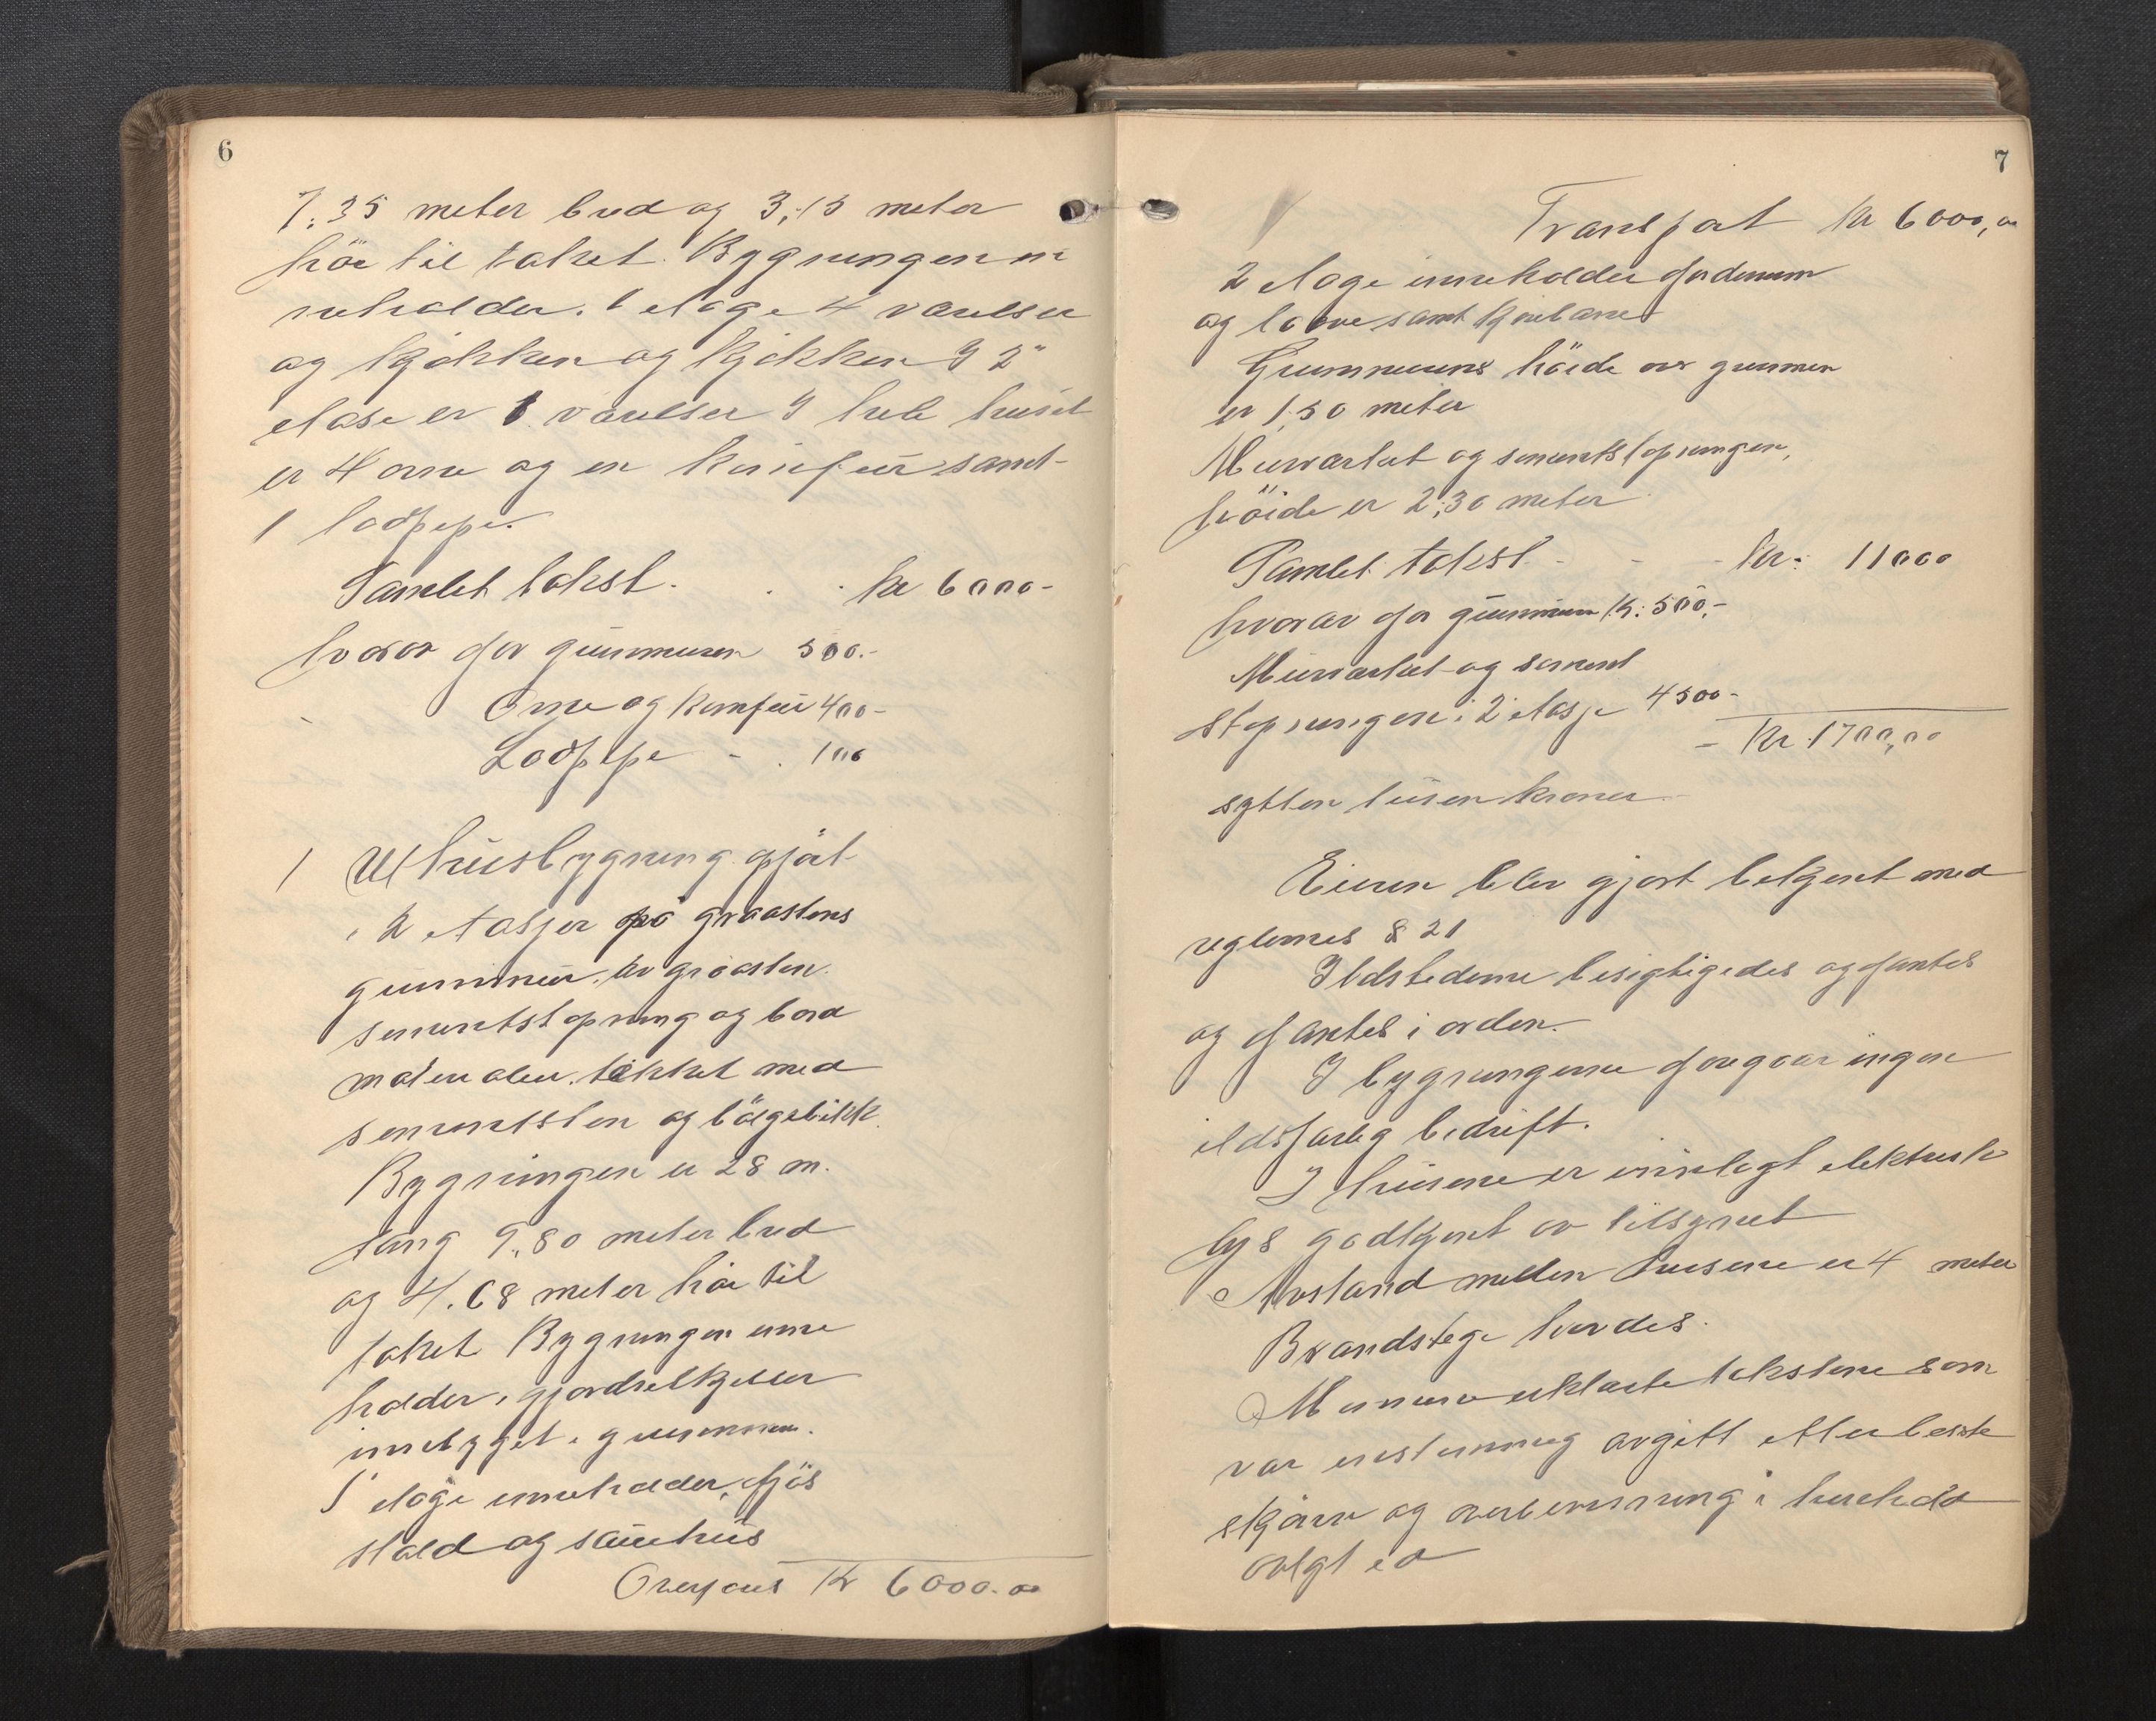 6
7.35 meter bred og 3,15 meter
höi til taket. Bygningen in
neholder. 1 etage 4 værelser
og kjökken og kjökken I 2"
etase er 1 værelser I hele huset
er 4 ovne og en komfur samt
1 lodpipe.
Samlet takst. . . kr 6000-
hvorav for grunmuren 500.-
Ovne og Komfur 400-
Lodpipe - . 100
1 Uthusbygning opfört
i 2 etasjer på graastens
grunnmur. av graasten
sementstøpning og bord
materialer. tækket med
sementsten og bölgeblikk.
Bygningen er 28 m.
lang 9.80 meter bred
og 4.68 meter höi til
taket Bygningen inne
holder, gjødselkjeller
innebygget i grunnmuren.
1' etage inneholder, fjös
stald og sauehus
Overføres Kr 6000.00
7
Transport kr 6000,00
2 etage inneholder forderum
og loove samt kjørebane
Grunmurens höide over grunnen
er 1,50 meter
Murverket og sementstøpningen,
höide er 2,30 meter
Samlet takst - - - kr: 11000
hvorav for grunmuren K: 500,-
Murverket og sement
støpningen i 2 etasje 4500-
- Kr. 1700,00
sytten tusen kroner.-
Eieren blev gjort bekjent med
reglernes § 21
Ildstederne besigtigedes og fantes
og fantes i orden.
I bygningerne foregaar ingen
ildsfarlig bedrift.
I husene er innlagt elektrisk
lys godkjent av tilsynet
Avstand mellem husene er 4 meter
Brandstege havdes.
Mennene erklærte takstene som
var enstemmig avgitt efter beste
skjønn og overbevisning i henhold
avlagt ed